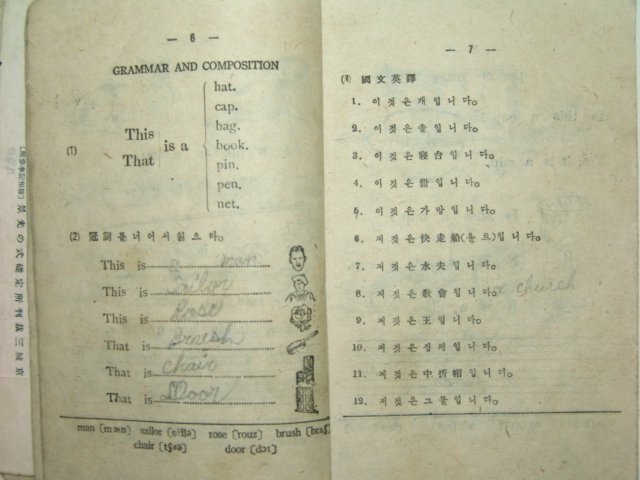 — 6 —
GRAMMAR AND COMPOSITION
(1) This That is a
hat.
cap.
bag.
book.
pin.
pen.
net.
(2) 冠詞를너어서읽으라。
This is man
This is Sailor
This is Rose
That is Brush
That is Chair
That is Door
man [mæn] sailor rose [rouz] brush
chair [tʃɛə] door [dɔː]
— 7 —
(3) 國文英譯
1. 이것은개입니다。
2. 이것은솔입니다。
3. 이것은寢台입니다。
4. 이것은冊입니다。
5. 이것은가방입니다。
6. 저것은快走船(욜트)입니다。
7. 저것은水夫입니다。
8. 저것은敎會입니다。 a church
9. 저것은王입니다。
10. 저것은집팽입니다。
11. 저것은中折帽입니다。
12. 저것은그물입니다。